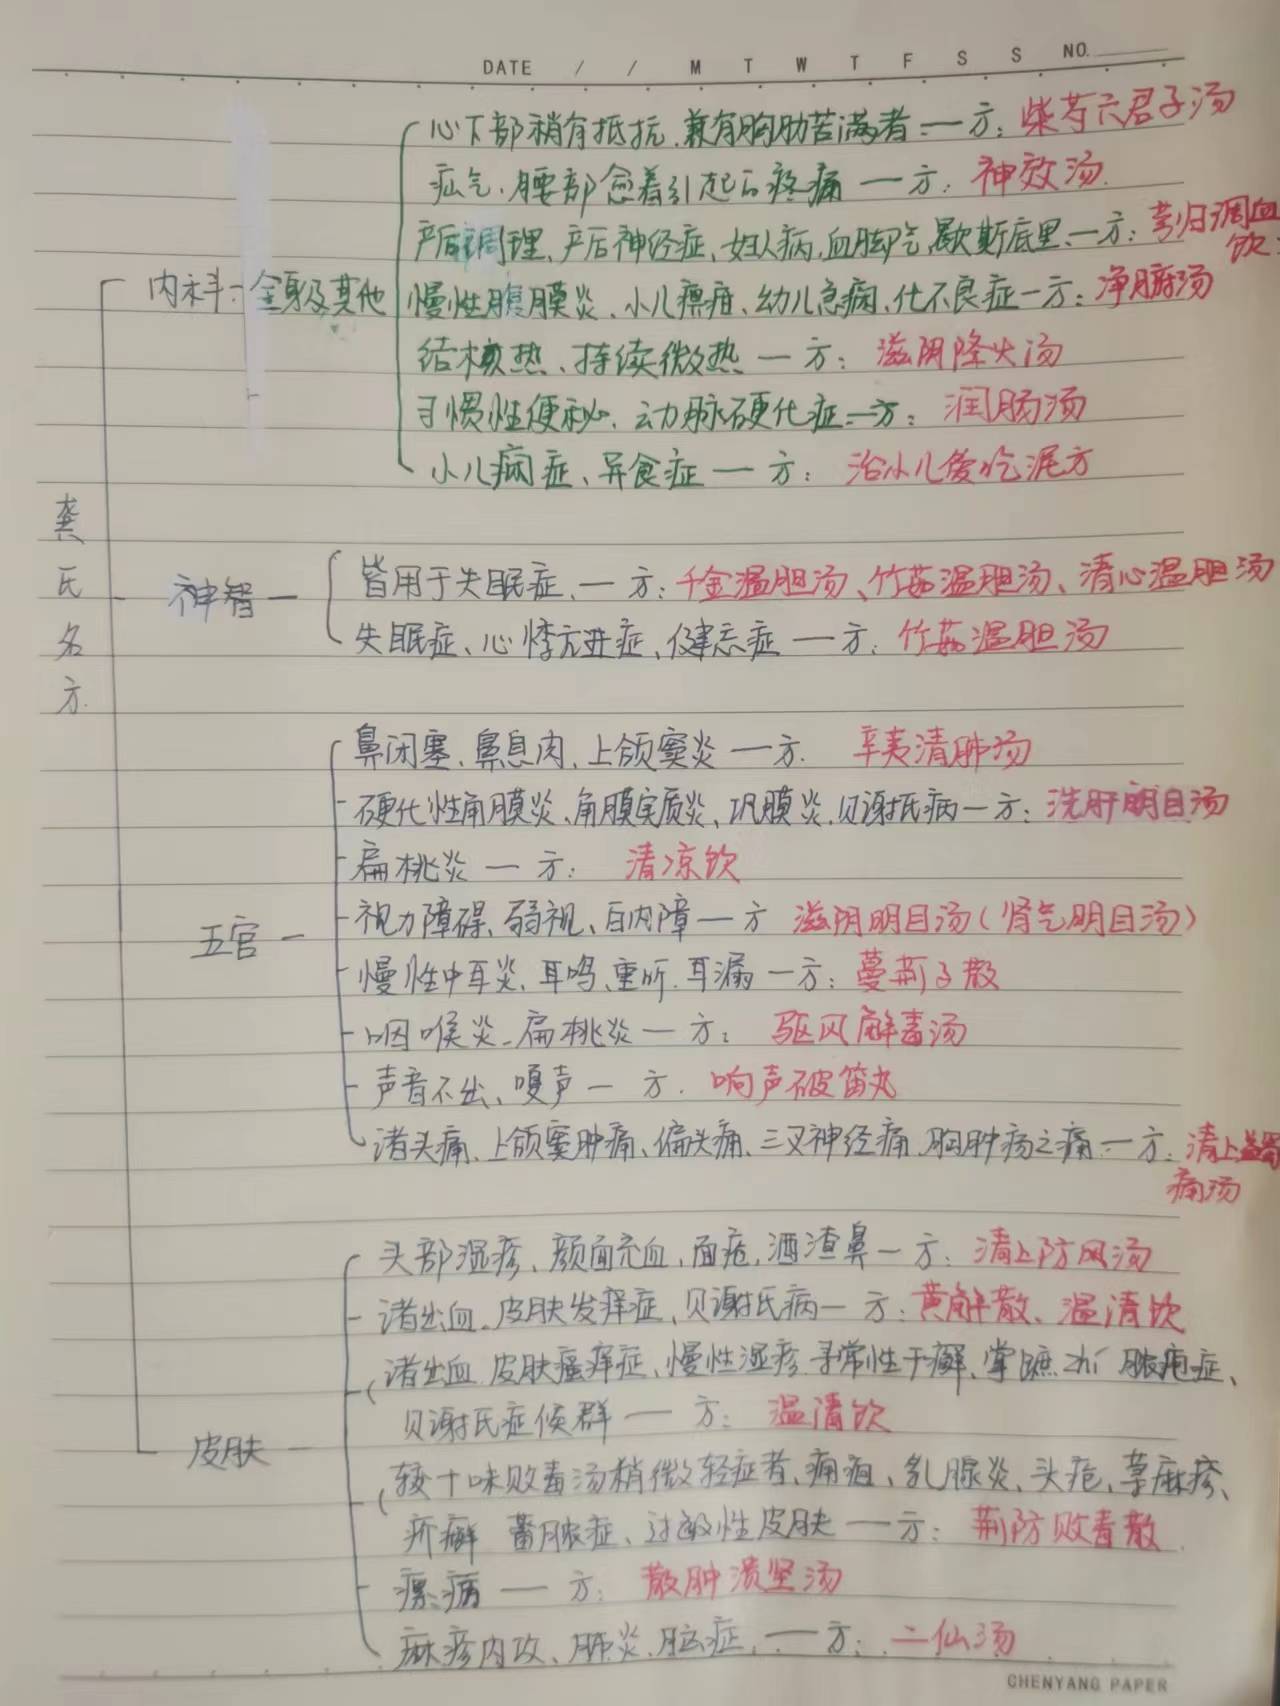 DATE / / M T W T F S S NO.
心下部稍有抵抗.兼有胸肋苦满者一方:柴芍六君子汤
疝气.腰部 引起的疼痛一方:神效汤.
产后调理、产后神经症、妇人病,血脚气,歇斯底里、一方:芎归调血
饮.
内科:全身及其他
慢性腹膜炎、小儿瘰疽、幼儿急痫、化不良症一方:净腑汤
结核热、持续微热一方:滋阴降火汤
习惯性便秘、动脉硬化症一方:润肠汤
小儿病症、异食症一方:治小儿爱吃泥方
龚氏名方
神智一
皆用于失眠症、一方:千金温胆汤、竹茹温胆汤、清心温胆汤
失眠症、心悸亢进症、健忘症一方:竹茹温胆汤
鼻闭塞、鼻息肉、上颌窦炎一方. 辛夷清肺汤
硬化性角膜炎、角膜实质炎、巩膜炎.贝谢氏病一方:洗肝明目汤
扁桃炎一方: 清凉饮
五官一
视力障碍、弱视、白内障一方 滋阴明目汤(肾气明目汤)
慢性中耳炎、耳鸣、重听.耳漏一方:蔓荆子散
咽喉炎、扁桃炎一方: 驱风解毒汤
声音不出、嗄声一方. 响声破笛丸
诸头痛、上颌窦肿痛、偏头痛、三叉神经痛、胸肿疡之痛一方:清上蠲
痛汤
头部湿疹、颜面充血、面疮,酒渣鼻一方:清上防风汤
诸出血、皮肤发痒症、贝谢氏病一方:黄解散、温清饮
诸出血.皮肤瘙痒症、慢性湿疹 寻常性干癣、掌蹠 脓疱症、
贝谢氏症候群一方: 温清饮
皮肤一
较十味败毒汤稍微轻症者、痈疽、乳腺炎、头疮、荨麻疹、
疥癣 蓄脓症、过敏性皮肤一方:荆防败毒散
瘰疬一方: 散肿溃坚汤
麻疹内攻、肺炎、脑症、一方: 二仙汤
CHENYANG PAPER